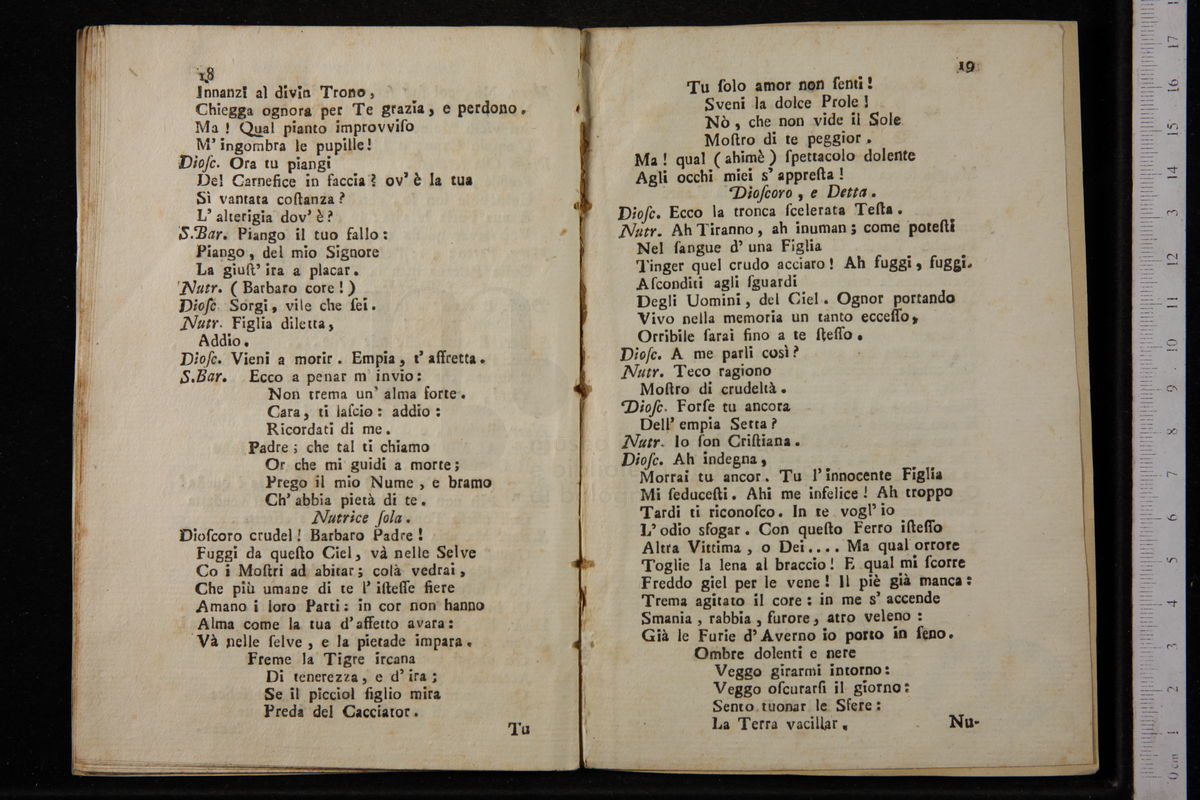 18
Innanzi al divin Trono,
Chiegga ognora per Te grazia, e perdono.
Ma! Qual pianto improvviſo
M' ingombra le pupille!
Dioſc. Ora tu piangi
Del Carnefice in faccia? ov' è la tua
Sì vantata coſtanza?
L' alterigia dov' è?
S.Bar. Piango il tuo fallo:
Piango, del mio Signore
La giuſt' ira a placar.
Nutr. (Barbaro core!)
Dioſc. Sorgi, vile che ſei.
Nutr. Figlia diletta,
Addio.
Dioſc. Vieni a morir. Empia, t' affretta.
S.Bar. Ecco a penar m' invio:
Non trema un' alma forte.
Cara, ti laſcio: addio:
Ricordati di me.
Padre; che tal ti chiamo
Or che mi guidi a morte;
Prego il mio Nume, e bramo
Ch' abbia pietà di te.
Nutrice ſola.
Dioſcoro crudel! Barbaro Padre!
Fuggi da queſto Ciel, và nelle Selve
Co i Moſtri ad abitar; colà vedrai,
Che più umane di te l' iſteſſe fiere
Amano i loro Parti: in cor non hanno
Alma come la tua d' affetto avara:
Và nelle ſelve, e la pietade impara.
Freme la Tigre ircana
Di tenerezza, e d' ira;
Se il picciol figlio mira
Preda del Cacciator.
Tu
19
Tu ſolo amor non ſenti!
Sveni la dolce Prole!
Nò, che non vide il Sole
Moſtro di te peggior.
Ma! qual (ahimè) ſpettacolo dolente
Agli occhi miei s' appreſta!
Dioſcoro, e Detta.
Dioſc. Ecco la tronca ſcelerata Teſta.
Nutr. Ah Tiranno, ah inuman; come poteſti
Nel ſangue d' una Figlia
Tinger quel crudo acciaro! Ah fuggi, fuggi.
Aſconditi agli ſguardi
Degli Uomini, del Ciel. Ognor portando
Vivo nella memoria un tanto ecceſſo,
Orribile ſarai fino a te ſteſſo.
Dioſc. A me parli così?
Nutr. Teco ragiono
Moſtro di crudeltà.
Dioſc. Forſe tu ancora
Dell' empia Setta?
Nutr. Io ſon Criſtiana.
Dioſc. Ah indegna,
Morrai tu ancor. Tu l' innocente Figlia
Mi ſeduceſti. Ahi me infelice! Ah troppo
Tardi ti riconoſco. In te vogl' io
L' odio sfogar. Con queſto Ferro iſteſſo
Altra Vittima, o Dei.... Ma qual orrore
Toglie la lena al braccio! E qual mi ſcorre
Freddo giel per le vene! Il piè già manca:
Trema agitato il core: in me s' accende
Smania, rabbia, furore, atro veleno:
Già le Furie d' Averno io porto in ſeno.
Ombre dolenti e nere
Veggo girarmi intorno:
Veggo oſcurarſi il giorno:
Sento tuonar le Sfere:
La Terra vacillar.
Nu-